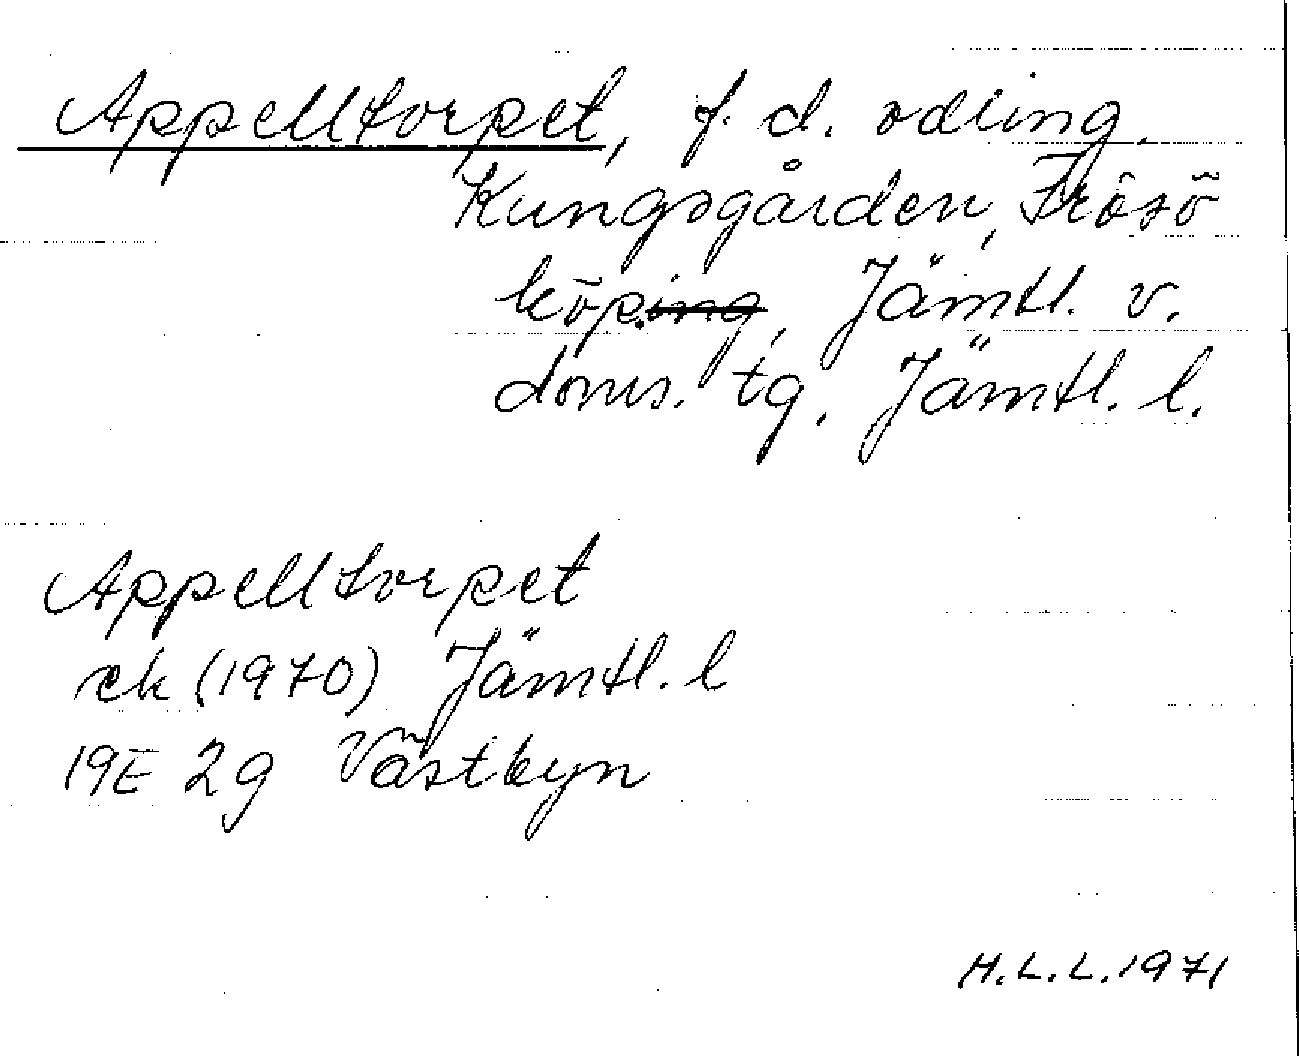 Appelltorpet, f. d. odling.
Kungsgården, Frösö
köp.ing, Jämtl. v.
doms. tg. Jämtl. l.
Appelltorpet
ek (1970) Jämtl. l
19E 2g Västbyn
H.L.L.1971